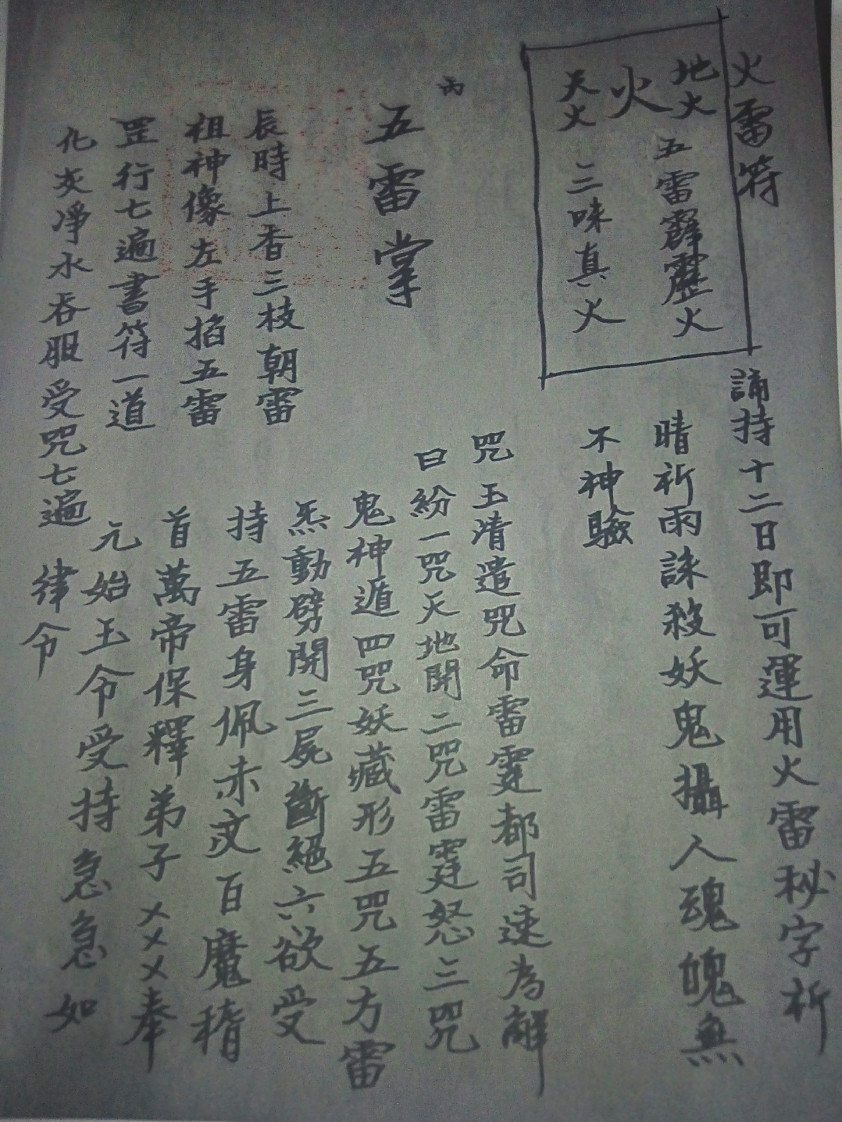 火雷符
地火 五雷霹靂火
火
天火 三味真火
誦持十二日即可運用火雷秘字祈
晴祈雨誅殺妖鬼攝人魂魄無
不神驗
丙
五雷掌
辰時上香三枝朝雷
祖神像左手掐五雷
罡行七遍書符一道
化灰凈水吞服受咒七遍
咒 玉清遣咒命雷霆都司速為解
曰紛一咒天地開二咒雷霆怒三咒
鬼神遁四咒妖藏形五咒五方雷
炁動劈開三屍斷絕六欲受
持五雷身佩赤文百魔稽
首萬帝保釋弟子乂乂乂奉
元始玉令受持急急如
律令